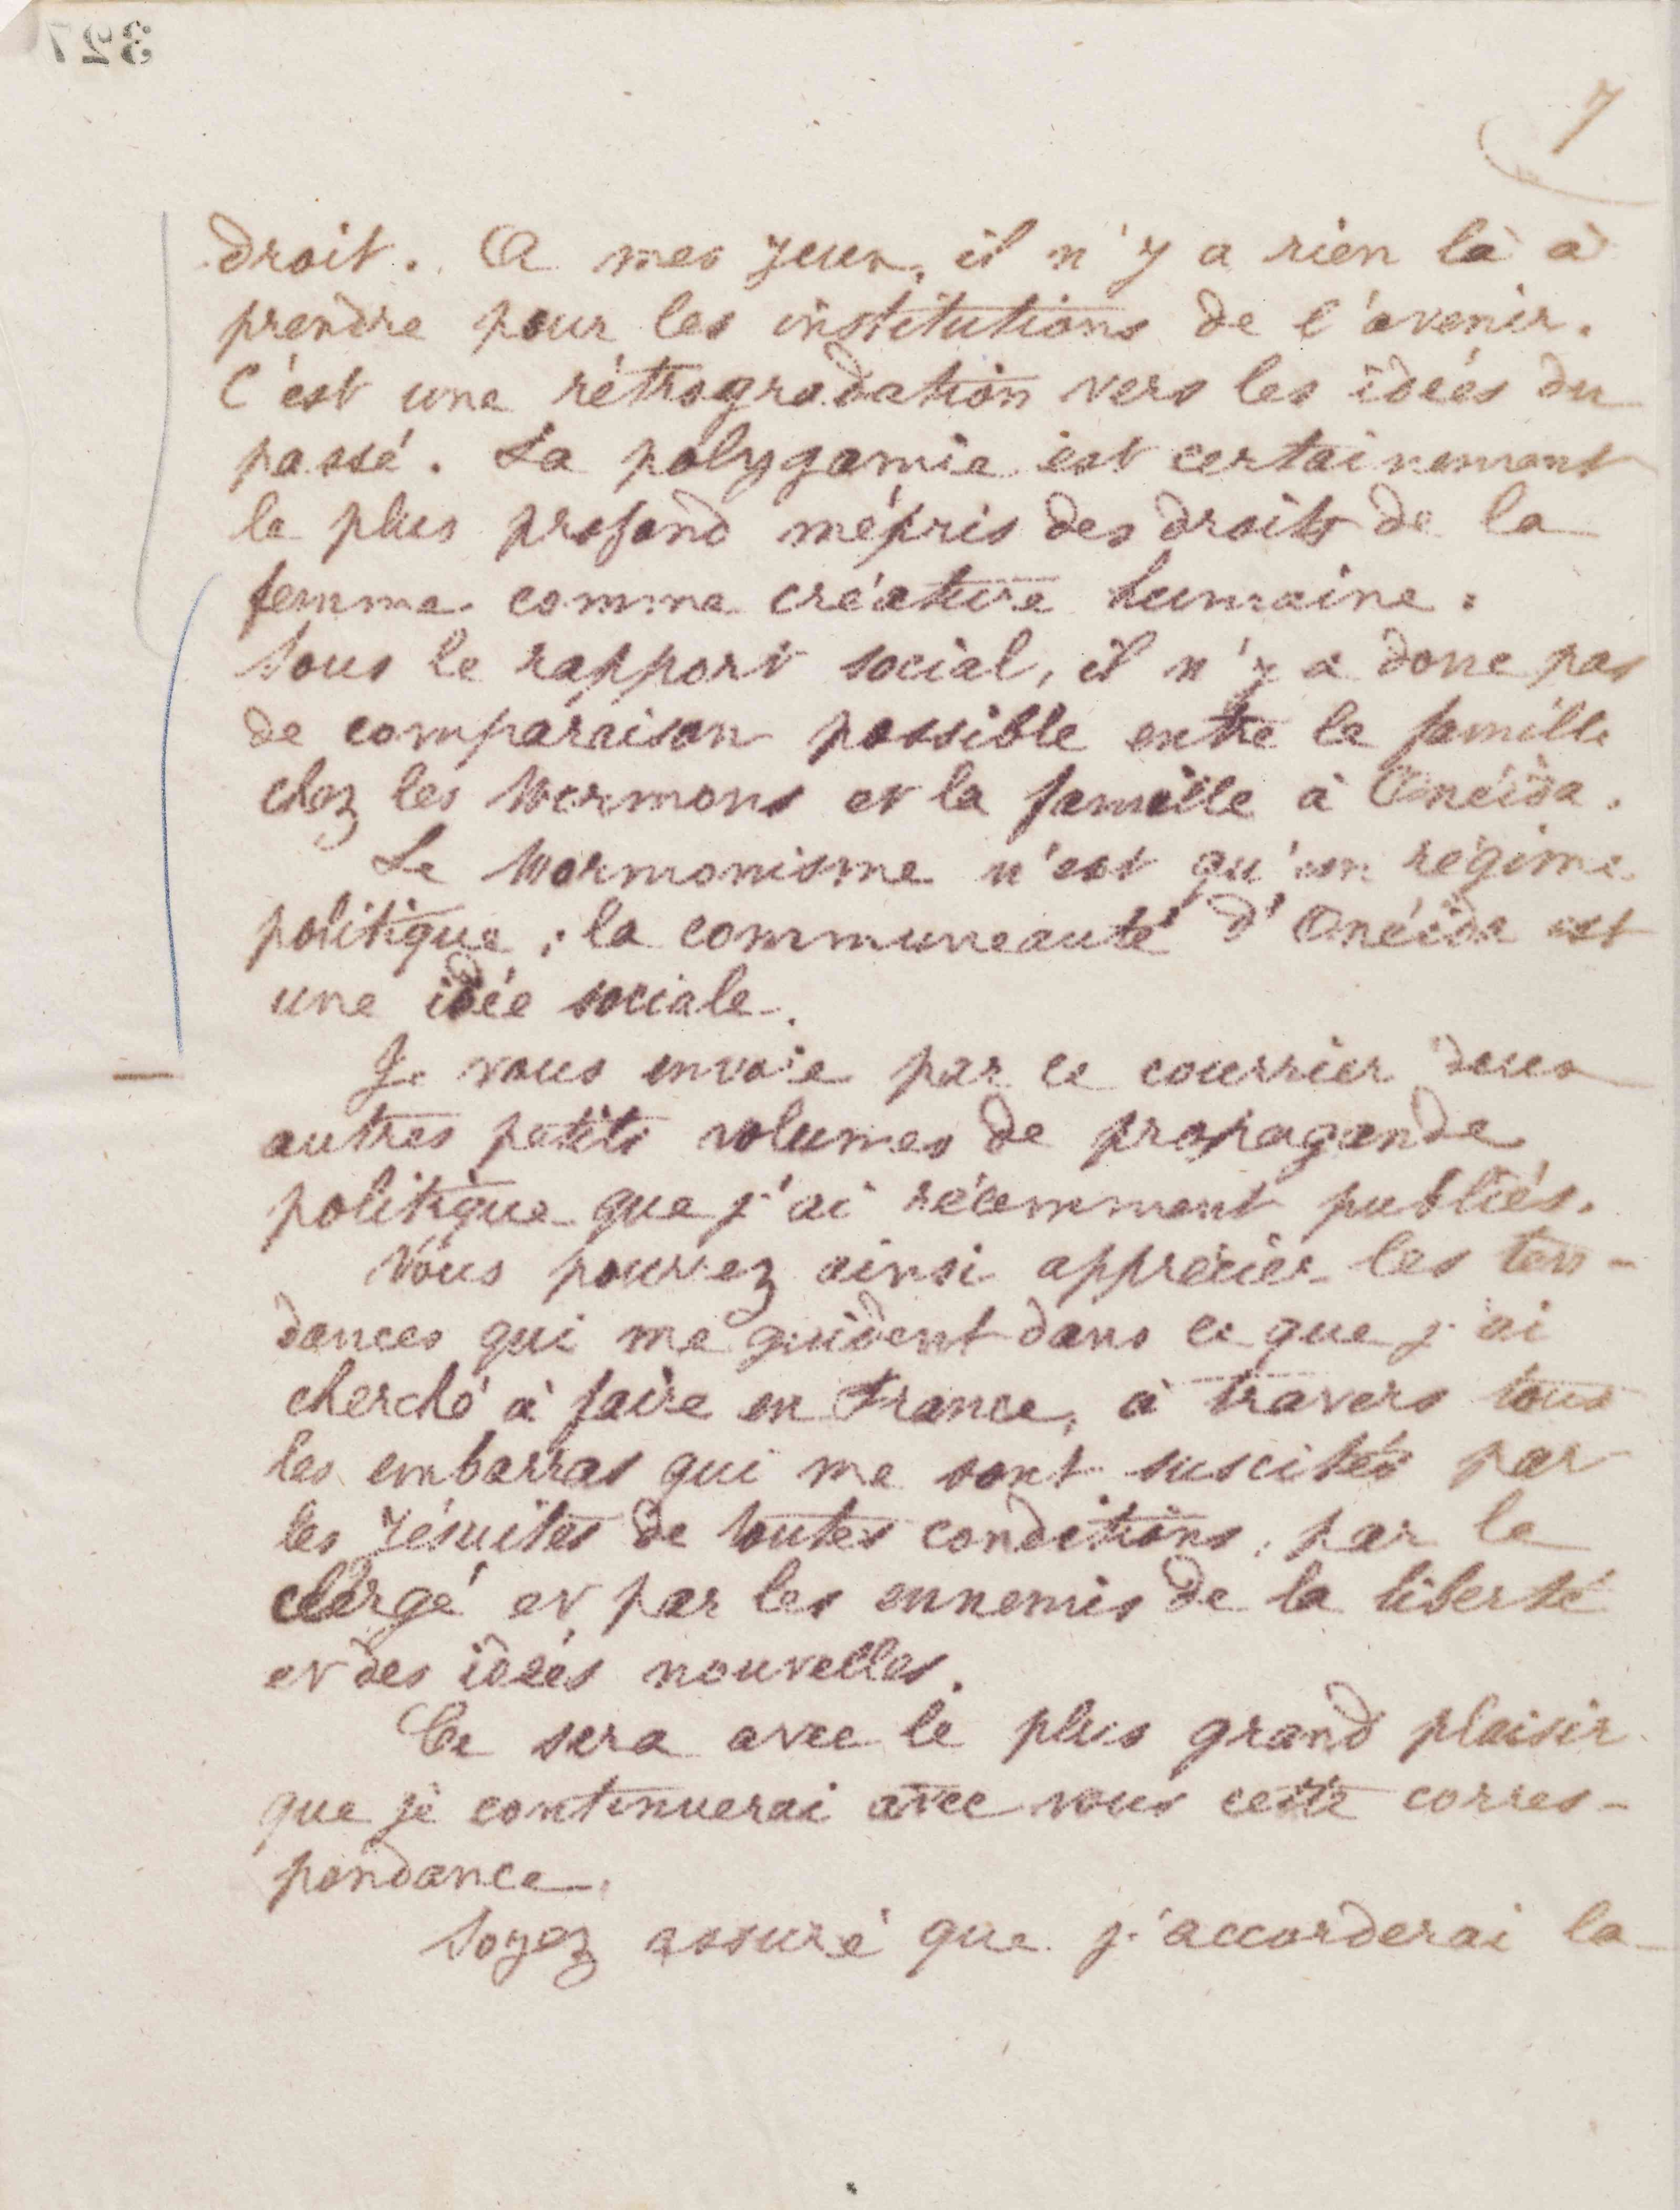 327
7
droit. A mes yeux, il n'y a rien là à
prendre pour les institutions de l'avenir.
C'est une rétrogradation vers les idées du
passé. La polygamie est certainement
le plus profond mépris des droits de la
femme comme créature humaine.
Sous le rapport social, il n'y a donc pas
de comparaison possible entre la famille
chez les Mormons et la famille à Onéida.
Le Mormonisme n'est qu'un régime
politique ; la communeauté d'Onéida est
une idée sociale.
Je vous envoie par ce courrier deux
autres petits volumes de propagande
politique que j'ai récemment publiés.
Vous pourrez ainsi apprécier les ten-
dances qui me guident dans ce que j'ai
cherché à faire en France, à travers tous
les embarras qui me sont suscités par
les Jésuites de toutes conditions, par le
clergé et par les ennemis de la liberté
et des idées nouvelles.
Ce sera avec le plus grand plaisir
que je continuerai avec vous cette corres-
pondance.
Soyez assuré que j'accorderai la